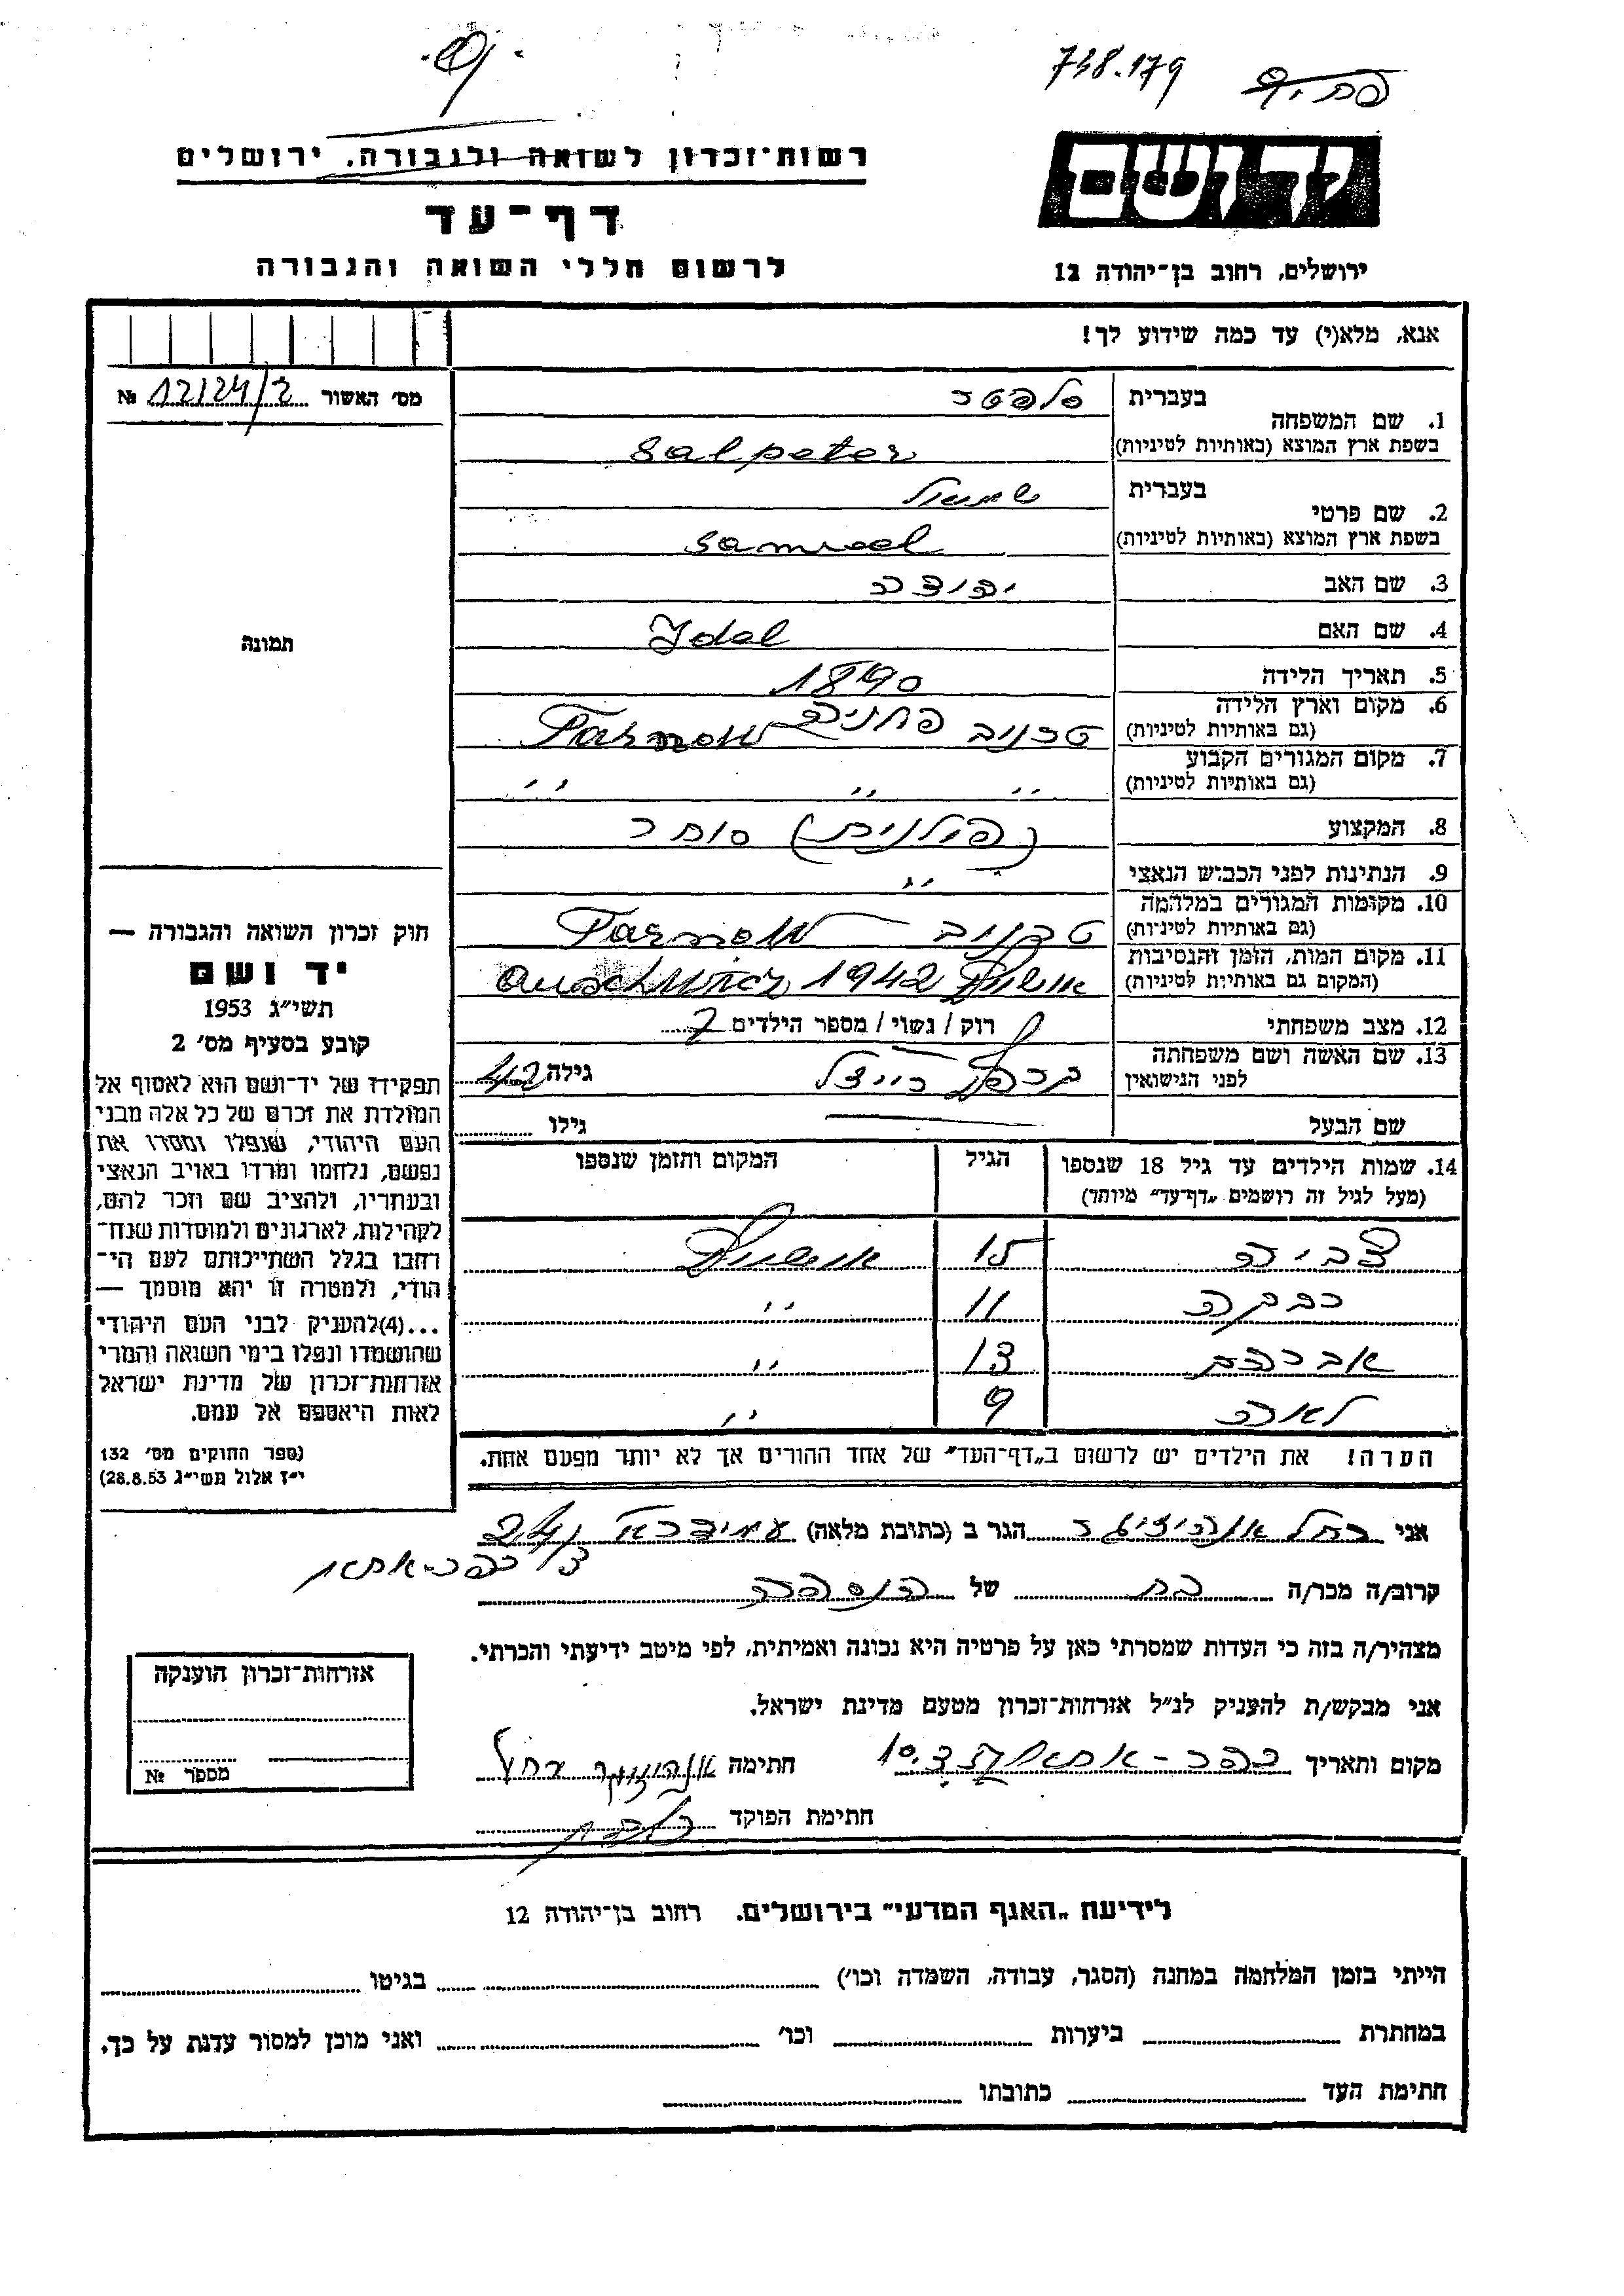 738.179
רשות־זכרון לשואה ולגבורה, ירושלים
יד ושם
דף־עד
לרשום חללי השואה והגבורה
ירושלים, רחוב בן־יהודה 12
אנא, מלא(י) עד כמה שידוע לך!
מס׳ האשור 12124/2 №
1. שם המשפחה
בעברית סלפטר
בשפת ארץ המוצא (באותיות לטיניות) Salpeter
2. שם פרטי
בעברית שמואל
בשפת ארץ המוצא (באותיות לטיניות) Samuel
3. שם האב יהודה
4. שם האם Idel
תמונה
5. תאריך הלידה 1890
6. מקום וארץ הלידה
(גם באותיות לטיניות) טרנוב Tarnow
7. מקום המגורים הקבוע
(גם באותיות לטיניות) ״ ״ ״
8. המקצוע סוחר (פולנית)
9. הנתינות לפני הכבוש הנאצי ״
10. מקומות המגורים במלחמה
(גם באותיות לטיניות) טרנוב Tarnow
11. מקום המות, הזמן והנסיבות
(המקום גם באותיות לטיניות) אושויץ 1942 Auschwitz
12. מצב משפחתי רוק / נשוי / מספר הילדים 7
13. שם האשה ושם משפחתה
לפני הנישואין רייזל גילה 42
שם הבעל גילו
14. שמות הילדים עד גיל 18 שנספו הגיל המקום והזמן שנספו
(מעל לגיל זה רושמים „דף־עד״ מיוחד)
צביה 15 אושויץ
רבקה 11 ״
אברהם 13 ״
לאה 9 ״
הערה! את הילדים יש לרשום ב„דף־העד״ של אחד ההורים אך לא יותר מפעם אחת.
חוק זכרון השואה והגבורה —
יד ושם
תשי״ג 1953
קובע בסעיף מס׳ 2
תפקידו של יד־ושם הוא לאסוף אל
המולדת את זכרם של כל אלה מבני
העם היהודי, שנפלו ומסרו את
נפשם, נלחמו ומרדו באויב הנאצי
ובעוזריו, ולהציב שם וזכר להם,
לקהילות, לארגונים ולמוסדות שנח־
רבו בגלל השתייכותם לעם הי־
הודי, ולמטרה זו יהא מוסמך —
...(4)להעניק לבני העם היהודי
שהושמדו ונפלו בימי השואה והמרי
אזרחות־זכרון של מדינת ישראל
לאות היאספם אל עמם.
(ספר החוקים מס׳ 132
י״ז אלול תשי״ג 28.8.53)
אני רחל הגר ב (כתובת מלאה) עמידר
כפר־אתא
קרוב/ה מכר/ה בת של הנספה
מצהיר/ה בזה כי העדות שמסרתי כאן על פרטיה היא נכונה ואמיתית, לפי מיטב ידיעתי והכרתי.
אני מבקש/ת להעניק לנ״ל אזרחות־זכרון מטעם מדינת ישראל.
מקום ותאריך כפר־אתא חתימה רחל
חתימת הפוקד
אזרחות־זכרון הוענקה
מספר №
לידיעת „האגף המדעי״ בירושלים. רחוב בן־יהודה 12
הייתי בזמן המלחמה במחנה (הסגר, עבודה, השמדה וכו׳) בגיטו
במחתרת ביערות וכו׳ ואני מוכן למסור עדות על כך.
חתימת העד כתובתו